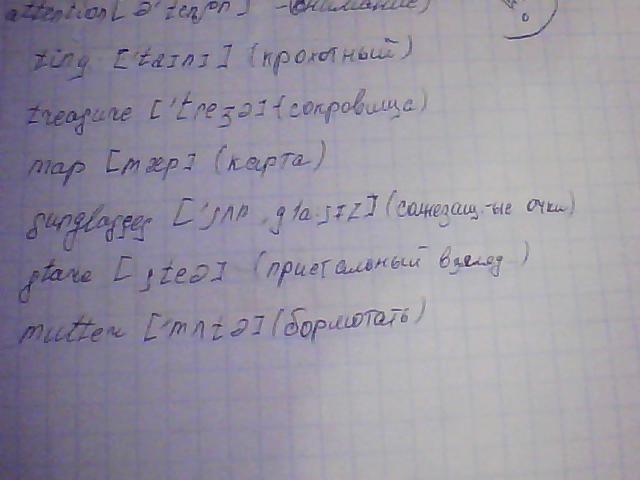 attention [ə'tenʃn] -(внимание)
tiny ['taɪnɪ] (крохотный)
treasure ['treʒə] (сокровища)
map [mæp] (карта)
sunglasses ['sʌn,gla:sɪz] (солнезащ-ые очки)
stare [steə] (пристальный взгляд)
mutter ['mʌtə] (бормотать)